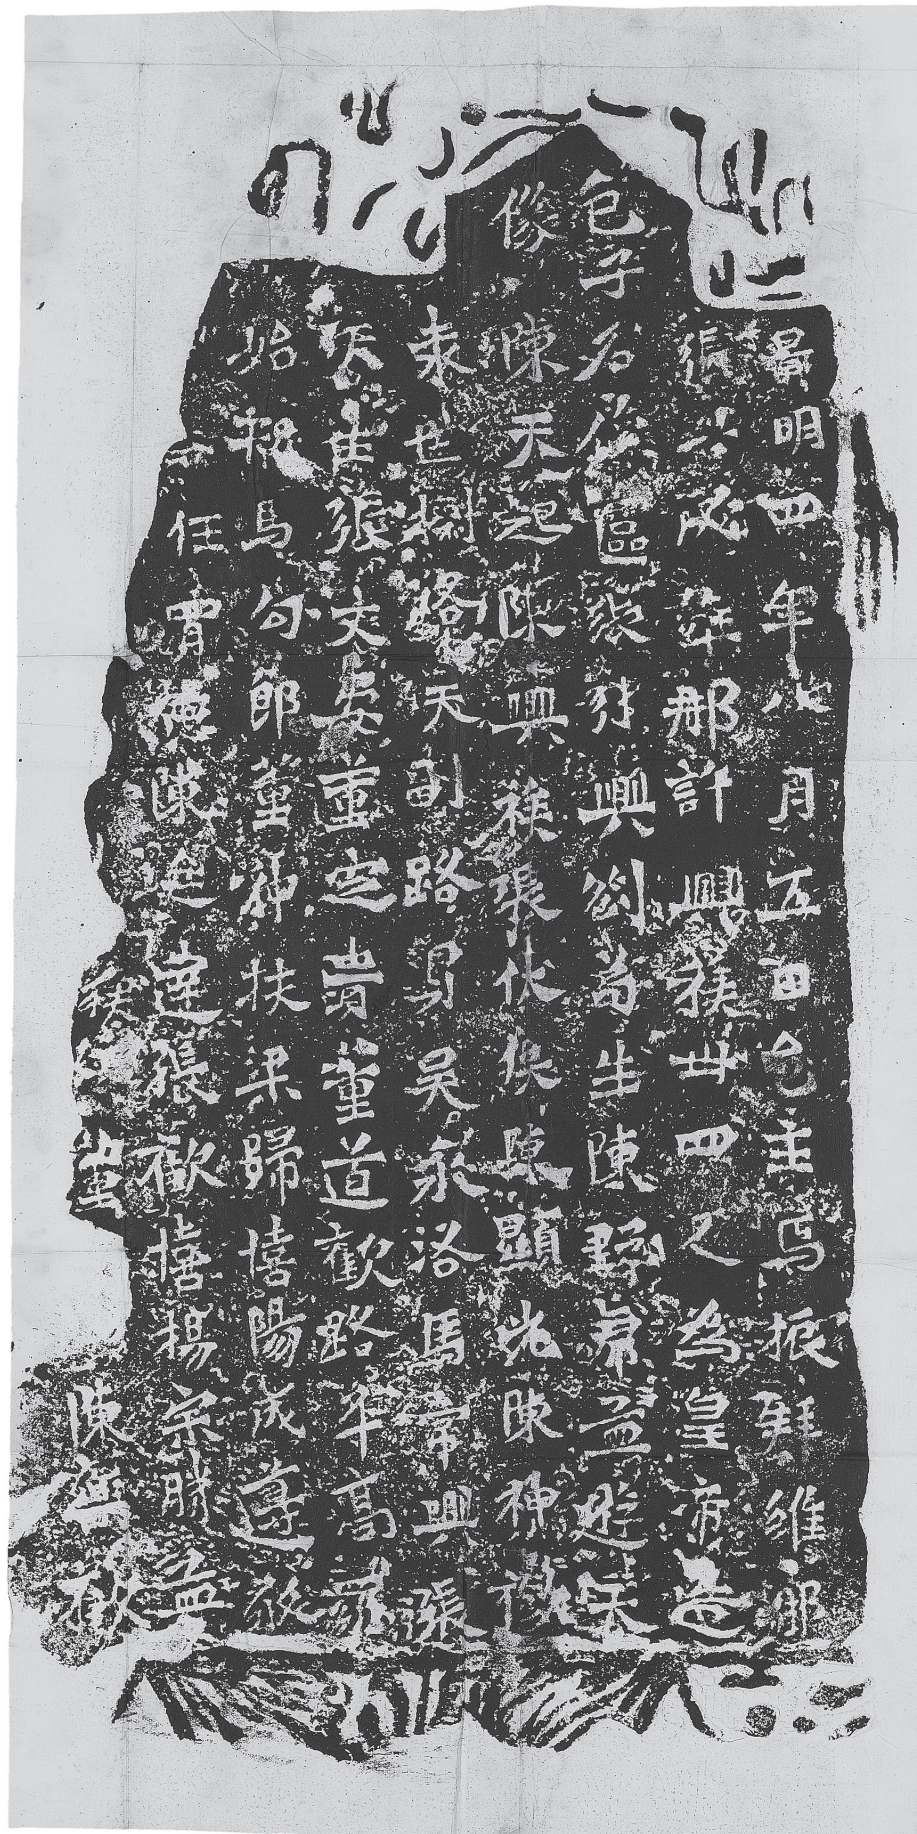 景明四年八月五日邑主馬振拜維那
張子成維那許興族卅四人為皇帝造
邑子石像一區張引興劉苟生陳野虎孟遊朱
像陳天起陳興族張伏保陳顯光陳神歡
來世樹路天副路買吳永洛馬常興張
天生張文安董之貴董道歡路平高
始和馬句郎董神扶梁歸憘陽成遵敬
任買德陳進達張歡憘楊宗勝孟
董陳歡